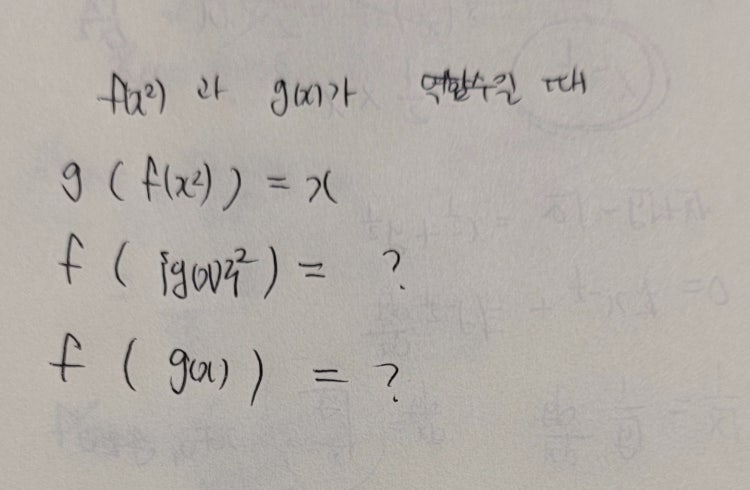 f(x²) 와 g(x)가 역함수일 때
g ( f(x²) ) = x
f ( {g(x)}² ) = ?
f ( g(x) ) = ?